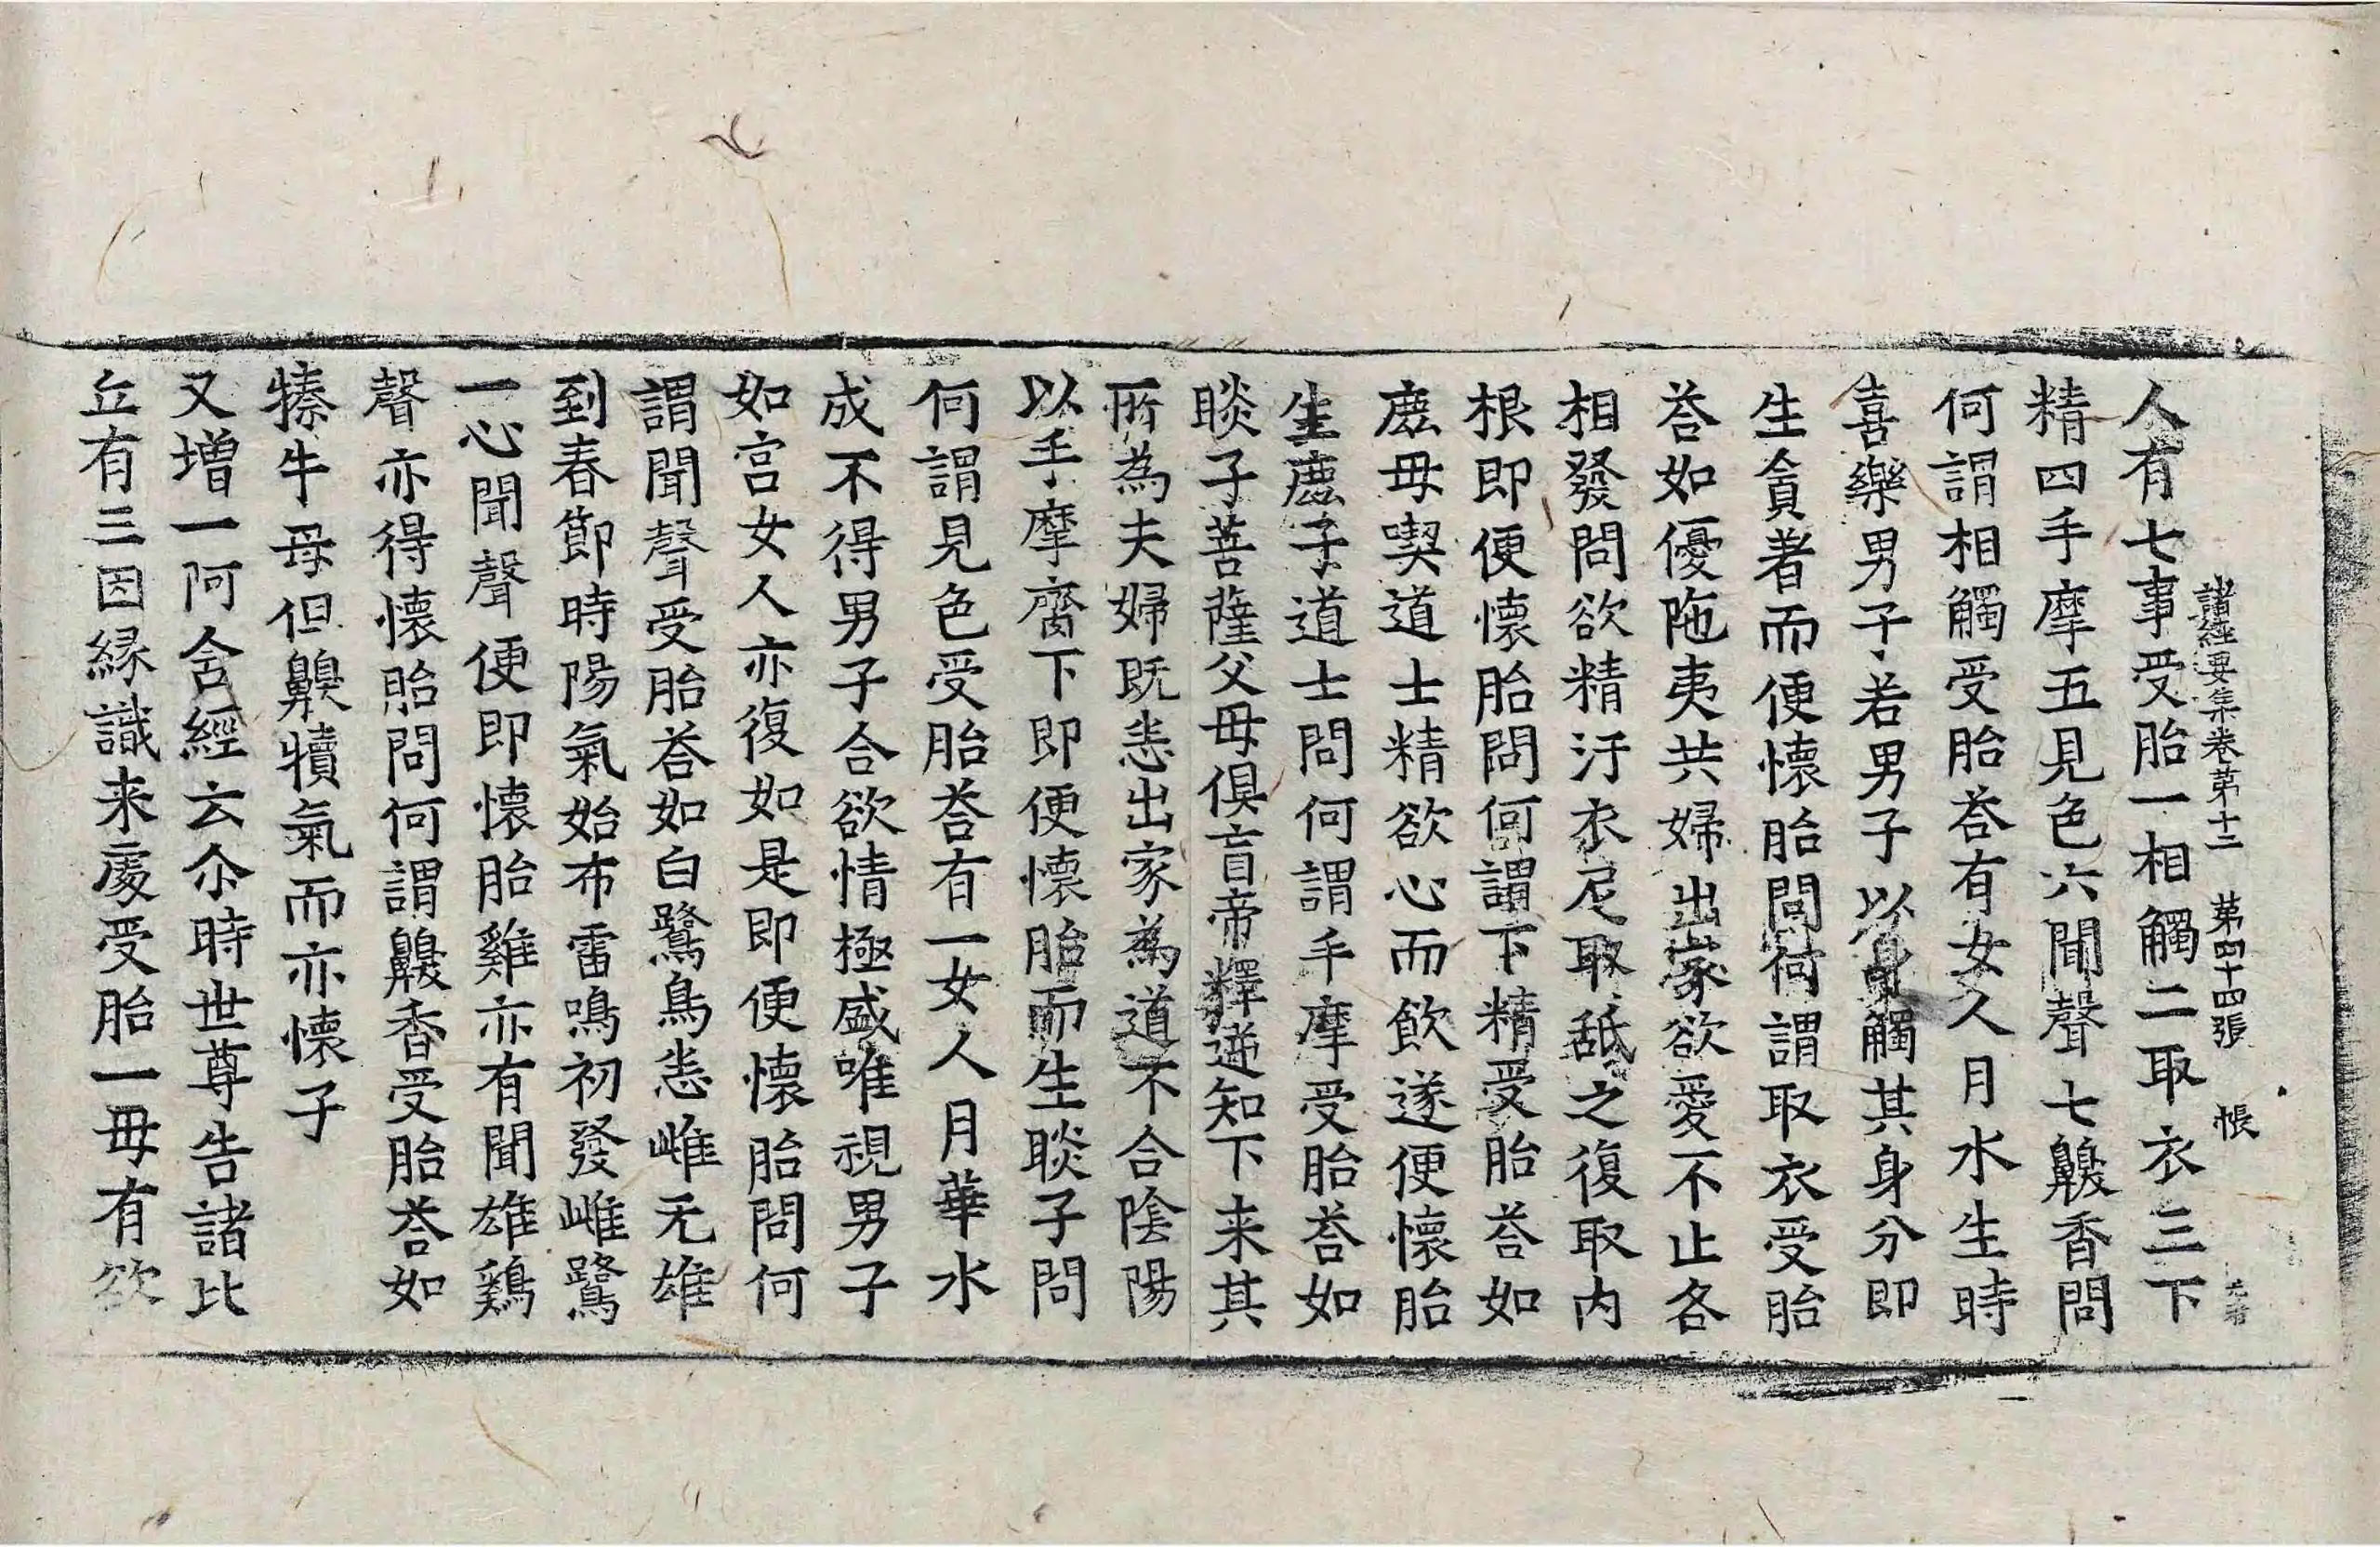 諸經要集卷第十二 第四十四張 帳
人有七事受胎一相觸二取衣三下
精四手摩五見色六聞聲七齅香問
何謂相觸受胎荅有女人月水生時
喜樂男子若男子以身觸其身分即
生貪著而便懷胎問何謂取衣受胎
荅如優陁夷共婦出家欲愛不止各
相發問欲精汙衣尼取舐之復取内
根即便懷胎問何謂下精受胎荅如
鹿母喫道士精欲心而飲遂便懷胎
生鹿子道士問何謂手摩受胎荅如
睒子菩薩父母俱盲帝釋遥知下来其
所為夫婦既恚出家為道不合陰陽
以手摩齎下即便懷胎而生睒子問
何謂見色受胎荅有一女人月華水
成不得男子合欲情極盛唯視男子
如宫女人亦復如是即便懷胎問何
謂聞聲受胎荅如白鷺鳥恚雌无雄
到春節時陽氣始布雷鳴初發雌鷺
一心聞聲便即懷胎雞亦有聞雄鷄
聲亦得懷胎問何謂齅香受胎荅如
㹎牛母但齅犢氣而亦懷子
又增一阿含經云尒時世尊告諸比
丘有三因縁識来處受胎一毋有欲